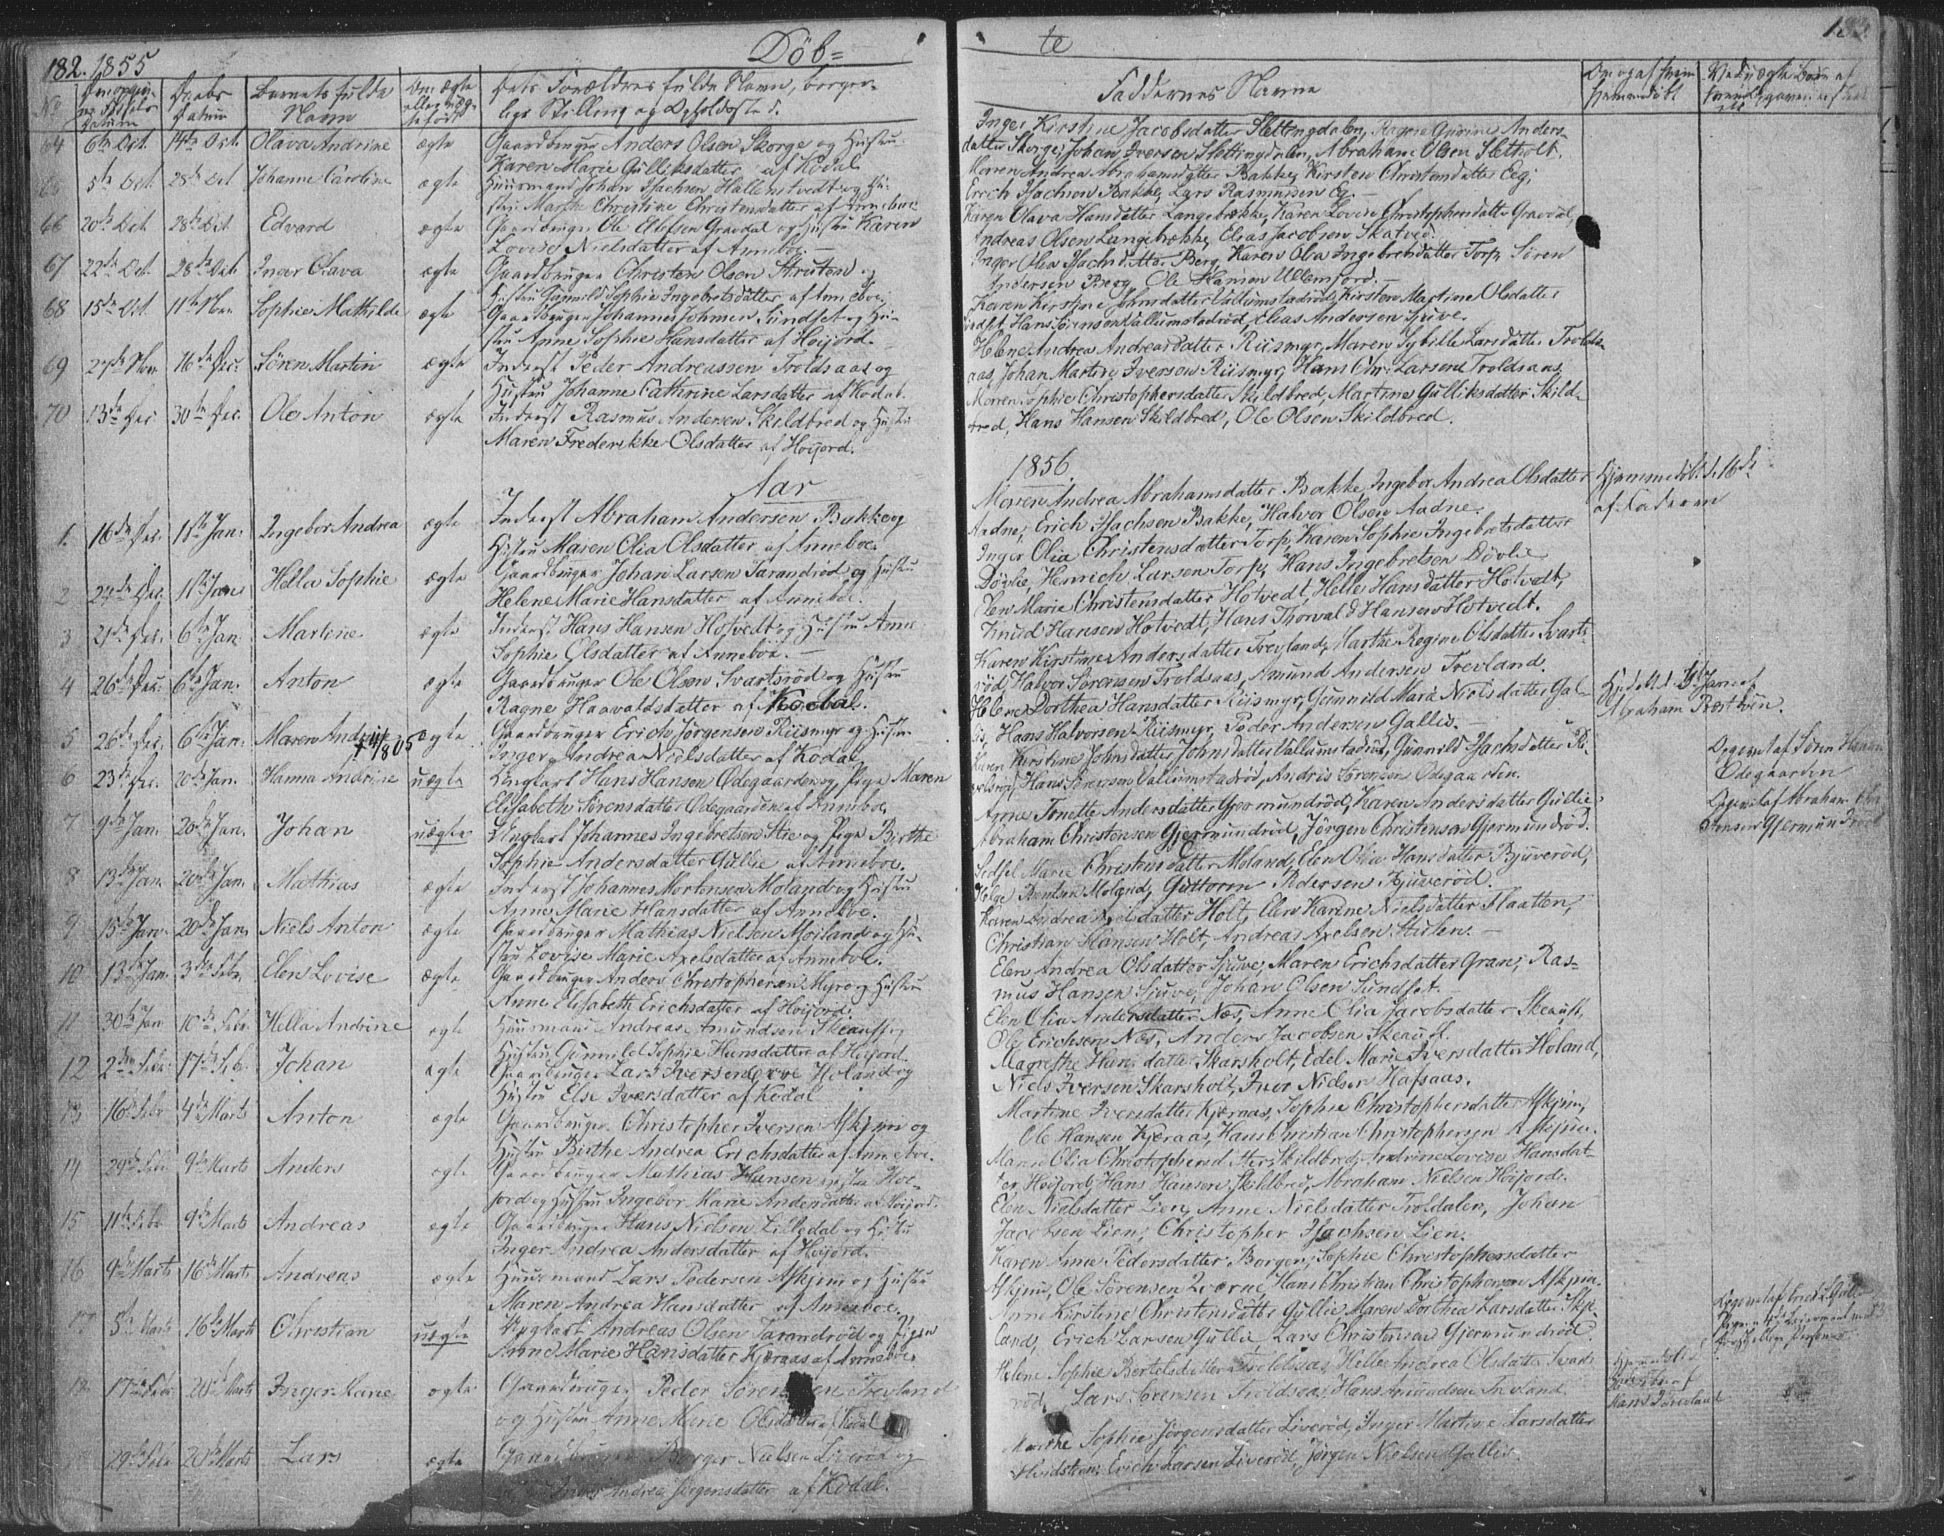 182. 1855
Döb=
No
Daabs Datum
Barnets fulde Navn
Om ægte eller uægte födt
Dets Forældres fulde Navn, borger-
lige Stilling og Opholdssted.
64 6te Oct. 14de Oct. Olava Andrine ægte Gaardbruger Anders Olsen Skorge og Hustru
Karen Marie Gulliksdatter af Kodal
5te Oct 28de Oct Johanne Caroline ægte Huusmand Johan Isachsen Hallenstvedt og Hu-
stru Marthe Christine Christensdatter af Anneboe.
66 20de Oct. 28de Oct Edvard ægte Gaardbruger Ole Ellefsen Gravdal og Hustru Karen
Lovise Nielsdatter af Anneboe.
67 22de Oct. 28de Oct. Inger Olava ægte Gaardbruger Christen Olsen og
Hustru Gunnild Sophie Ingebretsdatter af Anneboe.
68 15de Oct. 11te Nov Sophie Mathilde ægte Gaardbruger Johannes Johnsen Sundset og Hu-
stru Anne Sophie Hansdatter af Höijord.
69 27de Nov 16de Dec. Sören Martin ægte Inderst Peder Andreassen Troldsaas og
Hustru Johanne Cathrine Larsdatter af Kodal.
70 13de Dec 30te Dec. Ole Anton ægte Inderst Rasmus Andersen Skildbred og Hustru
Maren Frederikke Olsdatter af Höijord.
Aar
1. 16de Dec. 1ste Jan. Ingebor Andrea ægte Inderst Abraham Andersen Bakke og
Hustru Maren Olia Olsdatter af Anneboe.
2 24de Dec. 1ste Jan Hella Sophie ægte Gaardbruger Johan Larsen Tarandröd og Hustru
Helene Marie Hansdatter af Anneboe.
3 21de Dec. 6te Jan. Martine ægte Inderst Hans Hansen Hotvedt og Hustru Anne
Sophie Olsdatter af Anneboe.
4 26de Dec. 6te Jan. Anton ægte Gaardbruger Ole Olsen Svartsröd og Hustru
Ragne Haavaldsdatter af Kodal.
5 26de Dec. 6te Jan. Maren Andrine ægte Gaardbruger Erich Jörgensen Riismyr og Hustru
Inger Andrea Nielsdatter af Kodal
6 23de Dec. 20de Jan. Hanna Andrine uægte Ungkarl Hans Hansen Ödegaarden og Pige Maren
Elisabeth Sörensdatter Ödegaarden af Anneboe.
7 9de Jan. 20de Jan. Johan uægte Ungkarl Johannes Ingebretsen Stie og Pige Birthe
Sophie Andersdatter Gullie af Anneboe.
8 13de Jan. 20de Jan. Mathias ægte Inderst Johannes Mortensen Moland og Hustru
Anne Marie Hansdatter af Anneboe.
9 15de Jan. 20de Jan. Niels Anton ægte Gaardbruger Mathias Nielsen Moland og Hu-
stru Lovise Marie Axelsdatter af Anneboe.
10 13de Jan. 3die Febr. Elen Lovise ægte Gaardbruger Anders Christophersen Myre og Hustru
Anne Elisabeth Erichsdatter af Höijord.
11 30te Jan 10de Febr. Hella Andrine ægte Huusmand Andreas Amundsen Skeaust og
Hustru Gunnild Sophie Hansdatter af Höijord.
12 2den Febr. 17de Febr. Johan ægte Gaardbruger Lars Iversen Holand og
Hustru Else Iversdatter af Kodal
13 16de Febr 4de Marts Anton ægte Gaardbruger Christopher Iversen Askjem og
Hustru Birthe Andrea Erichsdatter af Anneboe.
14 29de Febr 9de Marts Anders ægte Gaardbruger Mathias Hansen Höi-
jord og Hustru Ingebor Marie Andersdatter af Höijord.
15 11te Febr 9de Marts Andreas ægte Gaardbruger Hans Nielsen Lilledal og Hustru
Inger Andrea Andersdatter af Höijord.
16 9de Marts 16de Marts Andreas ægte Huusmand Lars Pedersen Askjem og Hustru
Maren Andrea Hansdatter af Anneboe.
17 5te Marts 16de Marts Christian uægte Ungkarl Andreas Olsen Tarandröd og Pigen
Anne Marie Hansdatter Kjæraas af Anneboe.
18 17de Febr 20de Marts Inger Marie ægte Gaardbruger Peder Sörensen Trevland
og Hustru Anne Marie Olsdatter af Kodal
29de Febr 20de Marts Lars ægte Gaardbruger Borger Nielsen Liveröd og
Andrea Jörgensdatter af Kodal.
te
Faddernes Navne
Inger Kirstine Jacobsdatter Slettingdalen, Ragne Gurine Anders-
datter Skorge, Johan Iversen Slettingdalen, Abraham Olsen Sletholt.
Maren Andrea Abrahamsdatter Bakke, Kirsten Christensdatter Eeg;
Erich Isachsen Bakke, Lars Rasmussen Eg.
Karen Olava Hansdatter Langebrække, Karen Lovise Christophersdatter Gravdal,
Andreas Olsen Langebrække, Elias Jacobsen Skatvedt.
Inger Olia Isachsdatter Berg, Karen Olia Ingebretsdatter Torp, Sören
Andersen Berg, Ole Hansen
Karen Kirstine Johnsdatter Vallumstadröd, Kirsten Martine Olsdatter
Sundset, Hans Sörensen Vallumstadröd, Elias Andersen Sjuve.
Helene Andrea Andreasdatter Riismyr, Maren Sybille Larsdatter Trolds-
aas, Johan Martin Iversen Riismyr, Hans Chr. Larsen Troldsaas.
Maren Sophie Christophersdatter Skildbred, Martine Gulliksdatter Skild-
bred, Hans Hansen Skildbred, Ole Olsen Skildbred.
1856
Maren Andrea Abrahamsdatter Bakke, Ingebor Andrea Olsdatter
Aadne, Erich Isachsen Bakke, Halvor Olsen Aadne.
Hjemmedöbt d. 16de
af Faderen
Inger Olia Christensdatter Torp, Karen Sophie Ingebretsdatter
Dövlie, Henrich Larsen Torp, Hans Ingebretsen Dövlie
Elen Marie Christensdatter Hotvedt, Helle Hansdatter Hotvedt,
Knud Hansen Hotvedt, Hans Thorvald Hansen Hotvedt.
Karen Kirstine Andersdatter Trevland, Marthe Regine Olsdatter Svarts-
röd, Halvor Sörensen Troldsaas, Amund Andersen Trevland.
Helene Dorthea Hansdatter Riismyr, Gunnild Maria Nielsdatter Gal-
lis, Hans Halvorsen Riismyr, Peder Andersen Gallis.
Abraham
Karen Kirstine Johnsdatter Vallumstadröd, Gunnild Isachsdatter
Hans Sörensen Vallumstadröd, Andris Sörensen Ödegaarden.
Opgivet af Sören Hansen
Ödegaarden
Anne Tonette Andersdatter Gjermundröd, Karen Andersdatter Gullie,
Abraham Christensen Gjermundröd, Jörgen Christensen Gjermundröd.
Opgivet af Abraham Chri-
stensen Gjermundröd
Sidsel Marie Christensdatter Moland, Elen Olia Hansdatter Bjuveröd,
Helge Moland, Guttorm Pedersen Bjuveröd.
Karen Andrea Axelsdatter Holt, Elen Karine Nielsdatter Flaatten,
Christian Hansen Holt, Andreas Axelsen Stulen.
Elen Andrea Olsdatter Sjuve, Maren Erichsdatter Gran; Ras-
mus Hansen Sjuve, Johan Olsen Sundset.
Elen Olia Andersdatter Næs, Anne Olia Jacobsdatter Skeaust,
Ole Erichsen Næs, Anders Jacobsen Skeaust.
Magrethe Hansdatter Skarsholt, Edel Marie Iversdatter Holand,
Niels Iversen Skarsholt, Iver Nielsen Hafsaas.
Martine Iversdatter Kjæraas, Sophie Christophersdatter Askjem,
Ole Hansen Kjæraas, Hans Christian Christophersen Askjem.
Maren Olia Christophersdatter Skildbred, Andrine Lovise Hansdat-
ter Höijord, Hans Hansen Skildbred, Abraham Nielsen Höijord.
Elen Nielsdatter Lien, Anne Nielsdatter Troldalen, Johan
Jacobsen Lien, Christopher Isachsen Lien.
Karen Anne Pedersdatter Borgen, Sophie Christophersdatter
Askjem, Ole Sörensen Qværne, Hans Christian Christophersen Askjem.
Anne Kirstine Christensdatter Gullie, Maren Dorthea Larsdatter Skje-
land, Erich Larsen Gullie, Lars Christensen Gjermundröd.
Helene Sophie Bertelsdatter Troldsaas, Helle Andrea Olsdatter Svarts-
röd, Lars Iversen Troldsaas, Hans Amundsen Trevland.
Hans Trevland
Marthe Sophie Jörgensdatter Liveröd, Inger Martine Larsdatter
Hvidsteen, Erich Larsen Liveröd, Jörgen Nielsen Gallis.